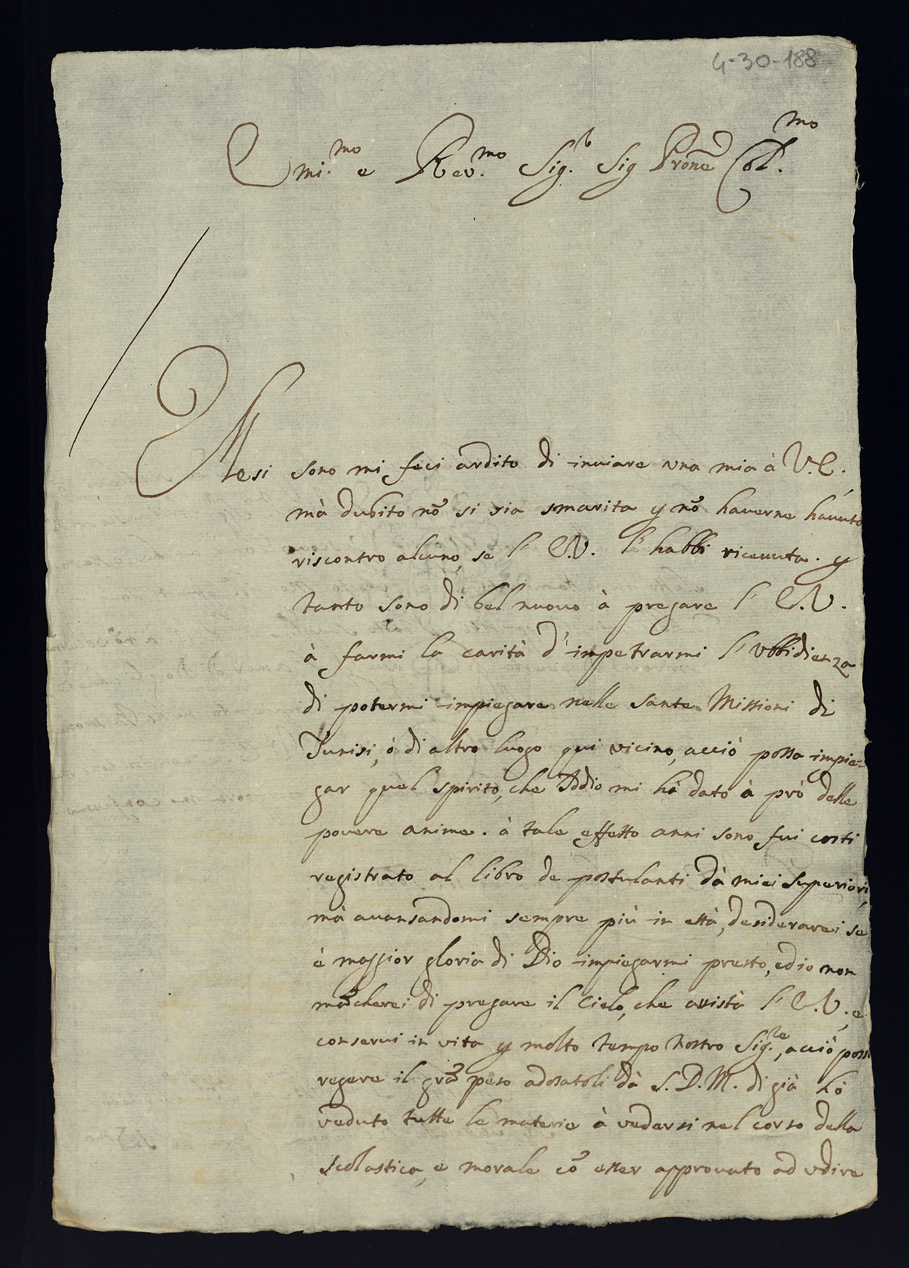 4-30-188
Emi.mo e Rev.mo Sig.r Sig Prone Col.mo
Mesi sono mi feci ardito di inviare una mia à V.E.
mà dubito nõ si sia smarita p nõ haverne havuto
riscontro alcuno, se l' E.V. l'habbi ricevuta. p
tanto sono di bel nuovo à pregare l' E.V.
à farmi la carità d'impetrarmi l'Vbbidienza
di potermi impiegare nelle Sante Missioni di
Tunisi, ò di altro luogo qui vicino, acciò possa impie-
gar quel spirito, che Iddio mi hà dato à prò delle
povere anime. à tale effetto anni sono fui costi
registrato al libro de postulanti dà miei Superiori
mà avansandomi sempre più in età, desiderarei se
è maggior gloria di Dio impiegarmi presto, ed io non
mãcherei di pregare il Cielo, che assista l'E.V., e
conservi in vita p molto tempo Nostro Sig.re, acciò possi
regere il grã peso adosatoli dà S.D.M. di già hò
veduto tutte le materie à vedersi nel corso della
scolastica, e morale cõ esser approvato ad udire